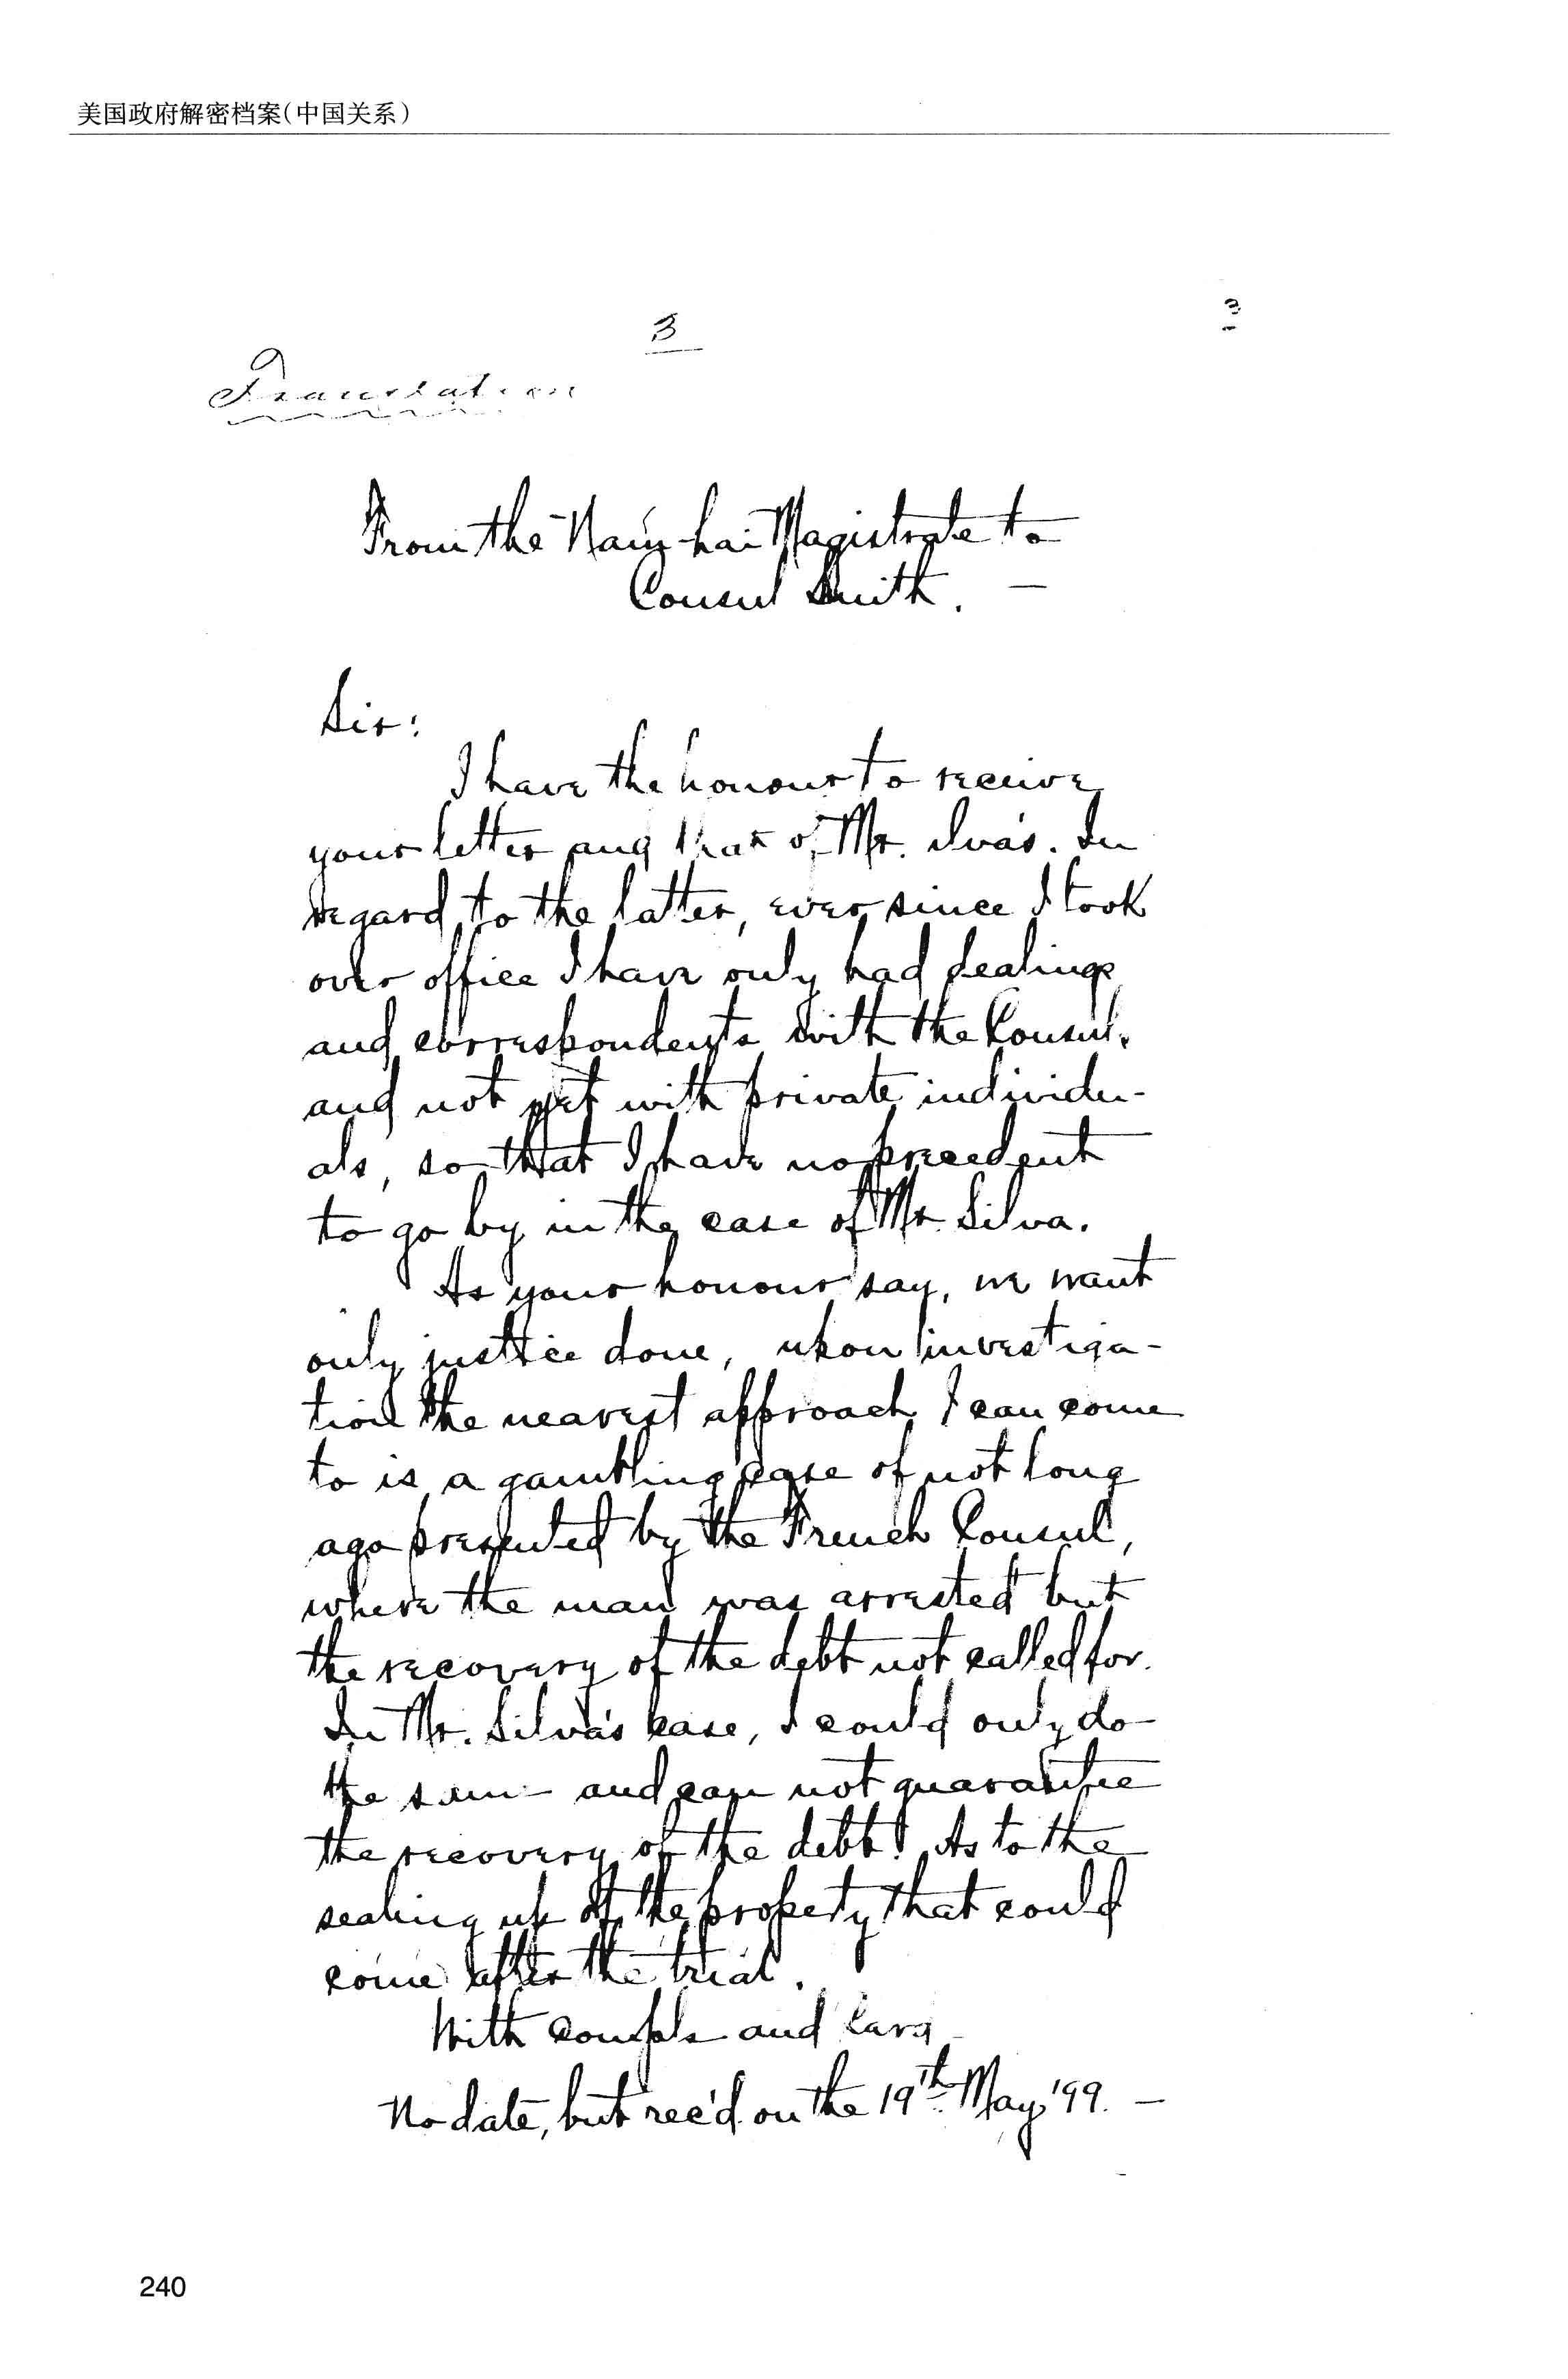 美国政府解密档案(中国关系)
3
3
Translation
From the Nam-hai Magistrate to
Consul Smith. —
Sir:
I have the honour to receive
your letter and that of Mr. Silva's. In
regard to the latter, ever since I took
over office I have only had dealings
and correspondents with the Consul,
and not yet with private individu-
als, so that I have no precedent
to go by in the case of Mr. Silva.
As your honour say, we want
only justice done, upon investiga-
tion the nearest approach I can come
to is a gambling case of not long
ago presented by the French Consul,
where the man was arrested but
the recovery of the debt not called for.
In Mr. Silva's case, I could only do
the same and can not guarantee
the recovery of the debt. As to the
sealing up of the property that could
come after the trial.
With compls and card
No date, but rec'd on the 19th May '99. —
240